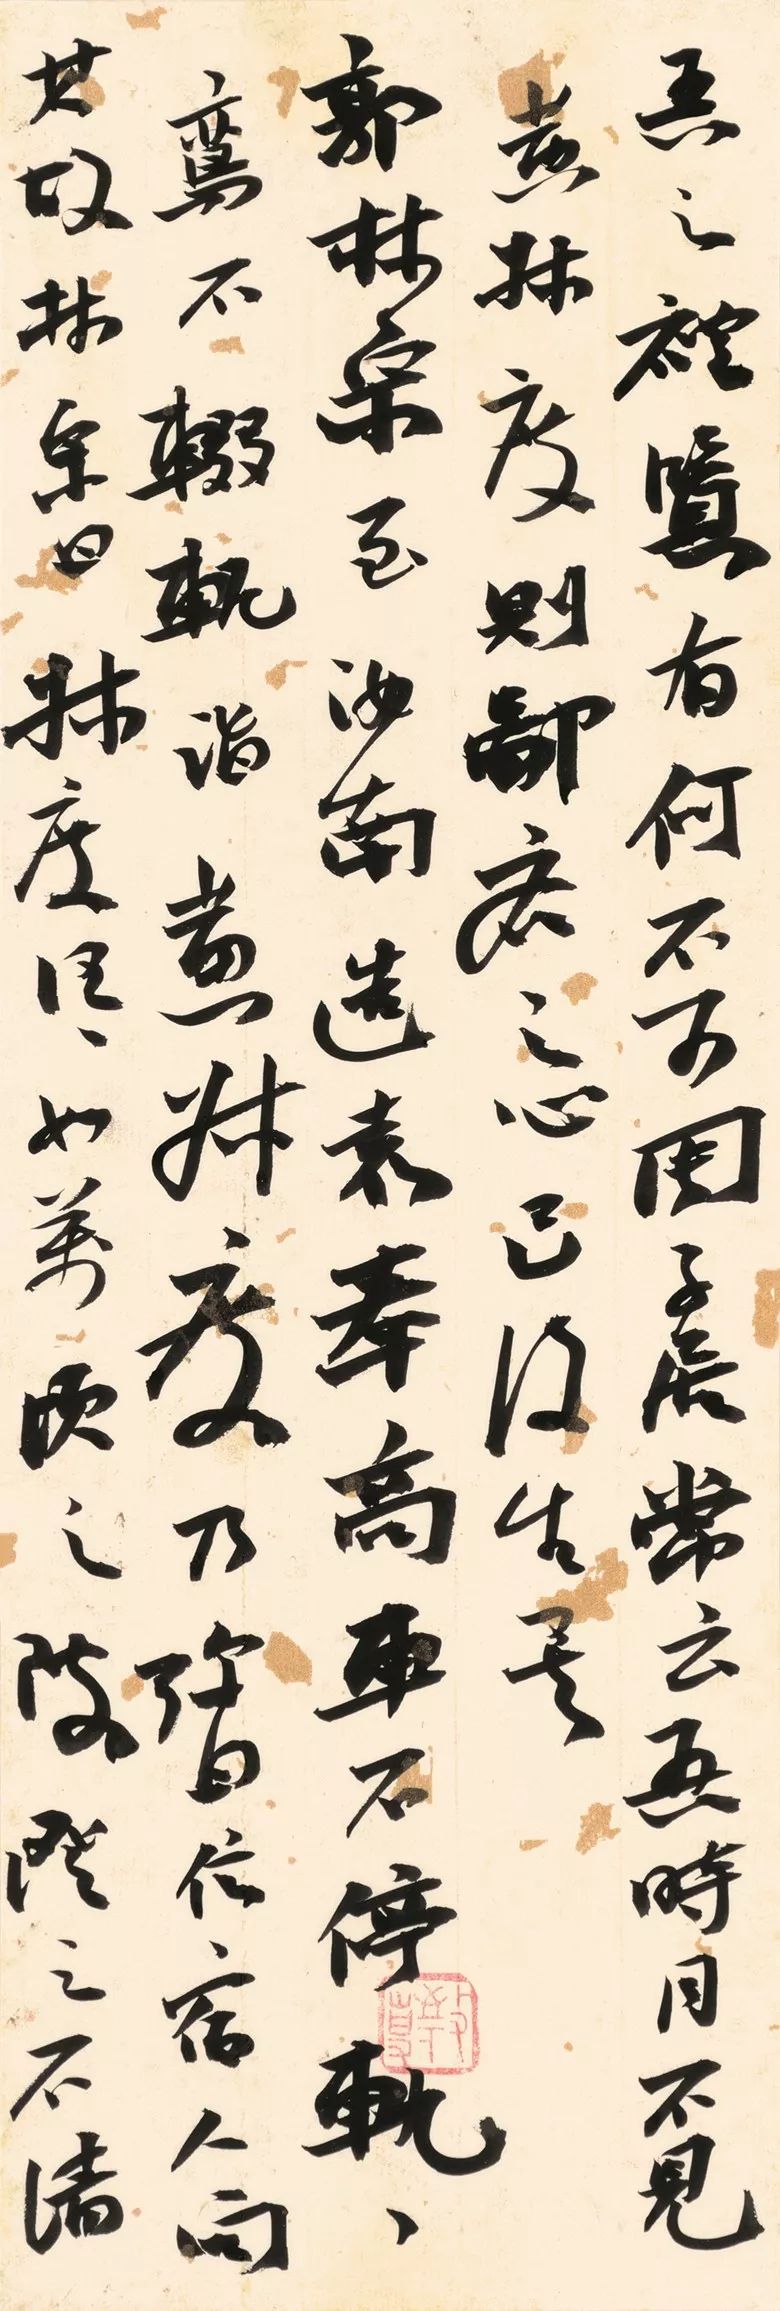 吾之禮賢有何不可周子居常云吾時月不見
黃叔度則鄙吝之心已復生矣
郭林宗至汝南造袁奉高車不停軌
鸞不輟軛詣黃叔度乃彌日信宿人問
其故林宗曰叔度汪汪如萬頃之陂澄之不清